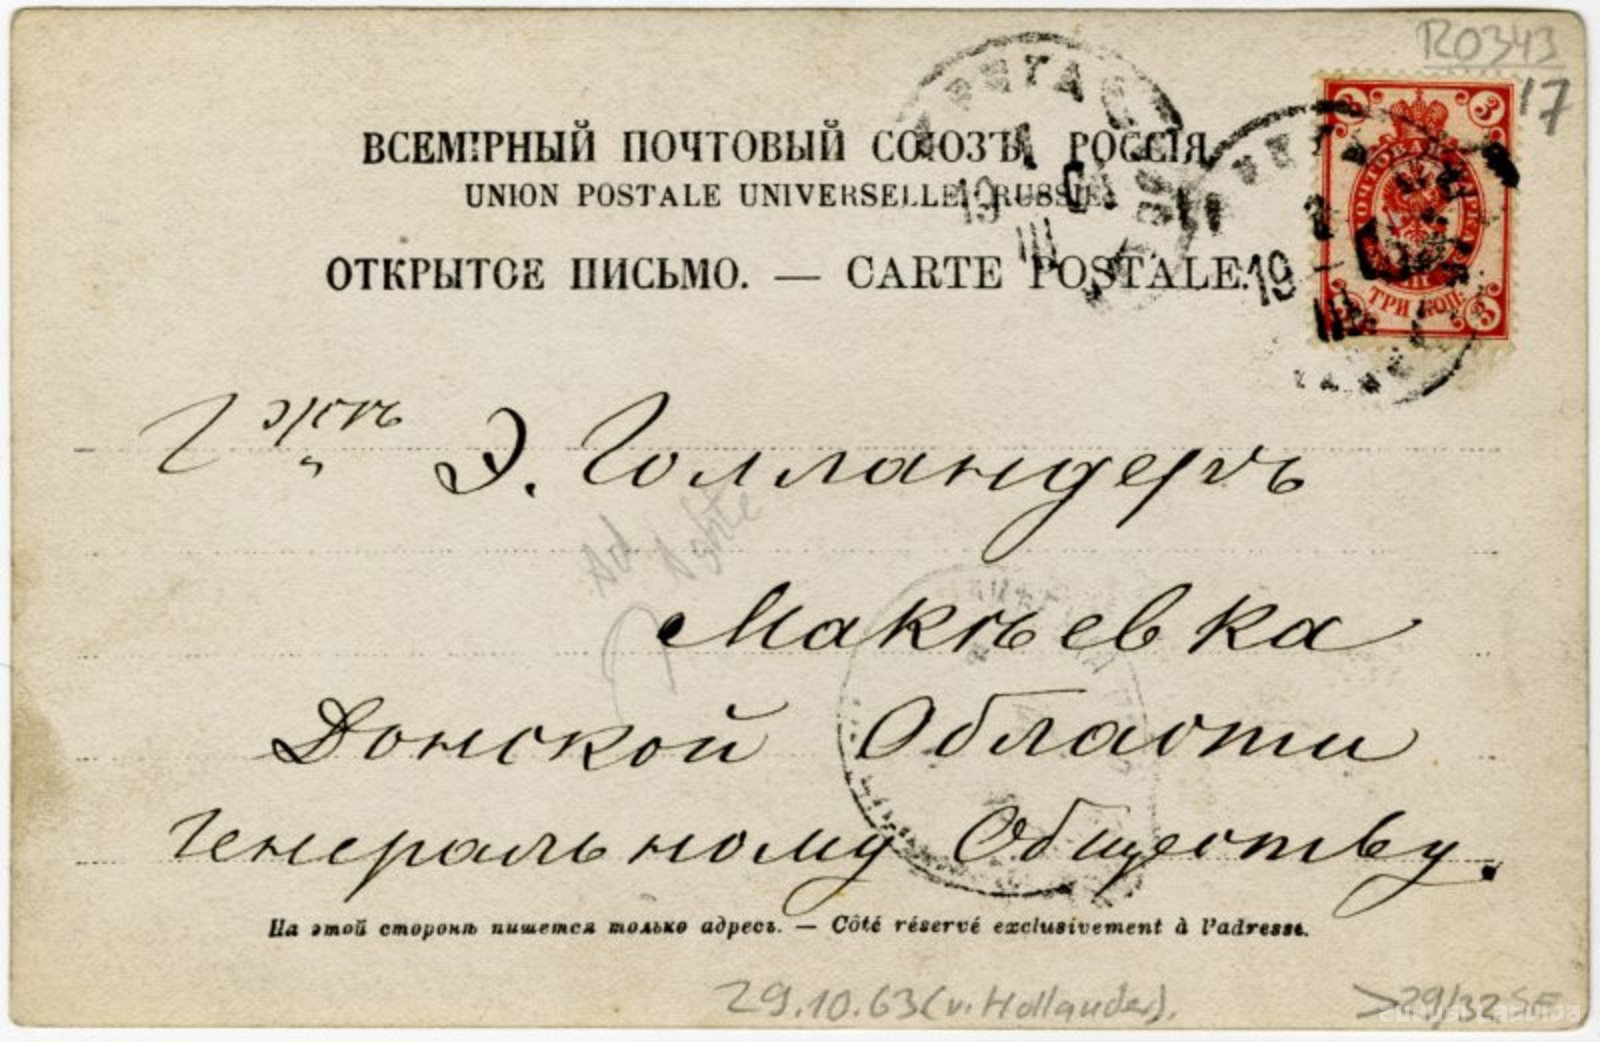 R0343
17
ВСЕМІРНЫЙ ПОЧТОВЫЙ СОЮЗЪ. РОССІЯ.
UNION POSTALE UNIVERSELLE. RUSSIE.
ОТКРЫТОЕ ПИСЬМО. — CARTE POSTALE.
19 III
19 III
3 3
ТРИ КОП.
3
Гжѣ Э. Голландеръ
Макѣевка
Донской Области
Генеральному Обществу.
На этой сторонѣ пишется только адресъ. — Côté réservé exclusivement à l'adresse.
29.10.63 (v. Hollander).
>29/32 SE
zudusilatvija